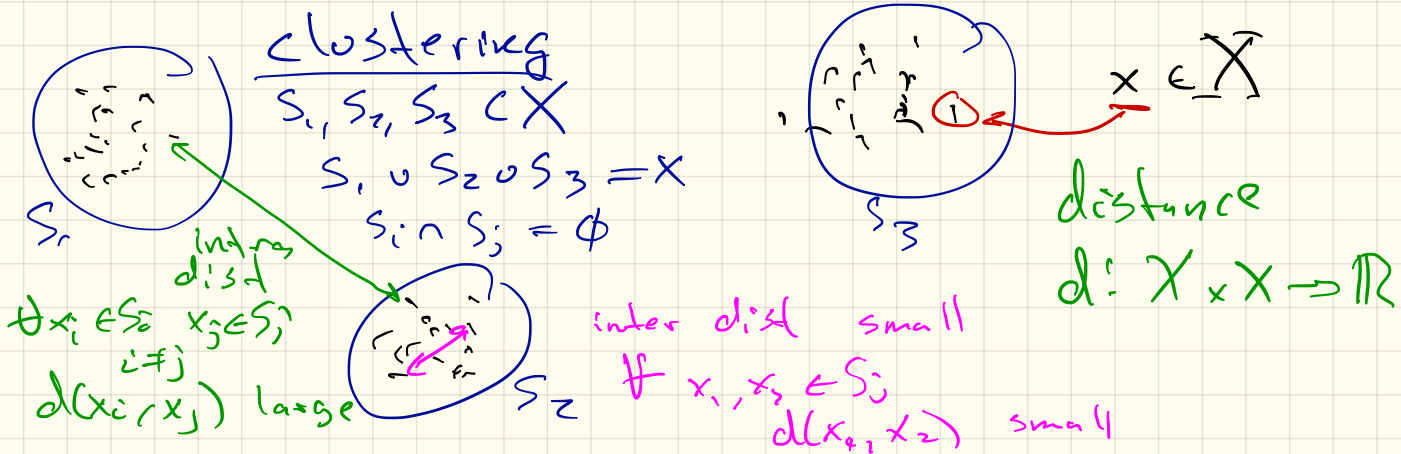 clustering
S₁, S₂, S₃ ⊂ X
S₁ ∪ S₂ ∪ S₃ = X
Sᵢ ∩ Sⱼ = ϕ
S₁
S₂
S₃
x ∈ X
distance
d: X × X → ℝ
intra
dist
∀ xᵢ ∈ Sᵢ xⱼ ∈ Sⱼ
i ≠ j
d(xᵢ, xⱼ) large
inter dist small
∀ x₁, x₂ ∈ Sⱼ
d(x₁, x₂) small